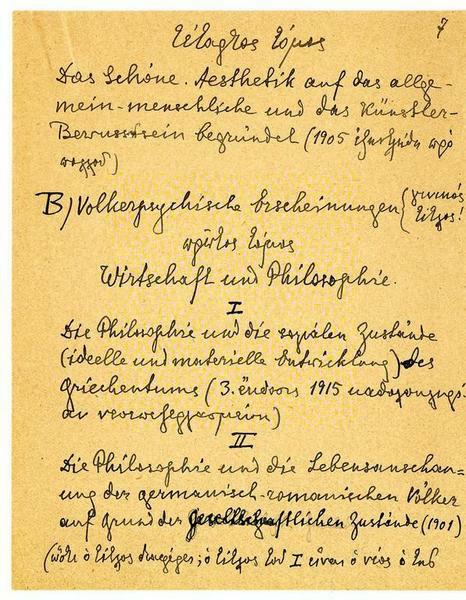 7
Τέταρτος τόμος
Das Schöne. Aesthetik auf das allge-
mein-menschliche und das Künstler-
Bewusstsein begründet (1905 ἐξηντλήθη πρὸ
πολλοῦ)
B) Völkerpsychische Erscheinungen (γενικὸς
τίτλος!
πρῶτος τόμος
Wirtschaft und Philosophie.
I
Die Philosophie und die sozialen Zustände
(ideelle und materielle Entwicklung) des
Griechentums (3. ἔκδοσις 1915
II
Die Philosophie und die Lebensanschau=
ung der germanisch-romanischen Völker
auf Grund der gesellschaftlichen Zustände (1901)
(ὁ τίτλος ὁ τίτλος τοῦ I εἶναι ὁ νέος ὁ τῆς